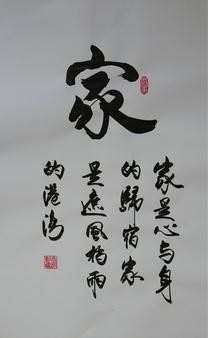 家
家是心与身
的歸宿家
是遮風擋雨
的港湾